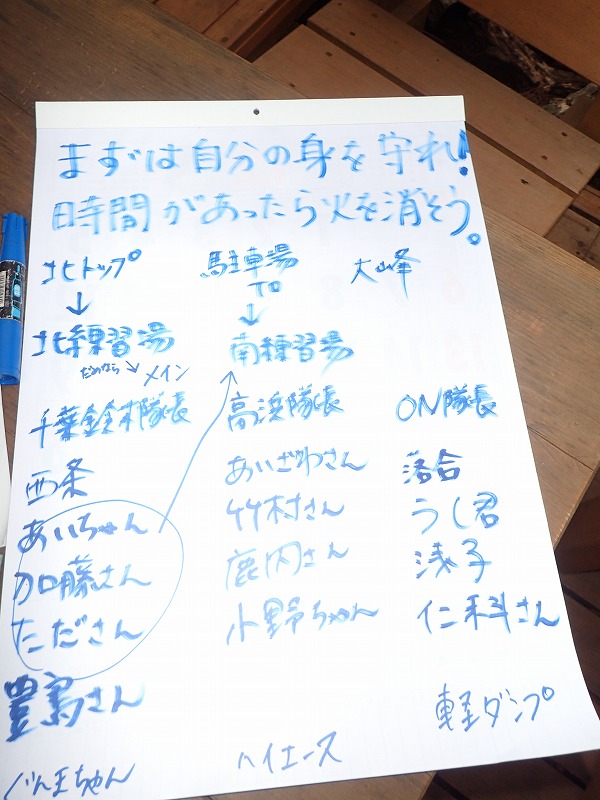 まずは自分の身を守れ!
時間があったら火を消そう。
北トップ
↓
北練習場
だめなら→メイン
千葉鈴木隊長
西条
あいちゃん
加藤さん
たださん
豊島さん
駐車場
TO
↓
南練習場
高浜隊長
あいざわさん
竹村さん
鹿内さん
小野ちゃん
ハイエース
大峰
ON隊長
落合
うし君
浅子
仁科さん
軽ダンプ